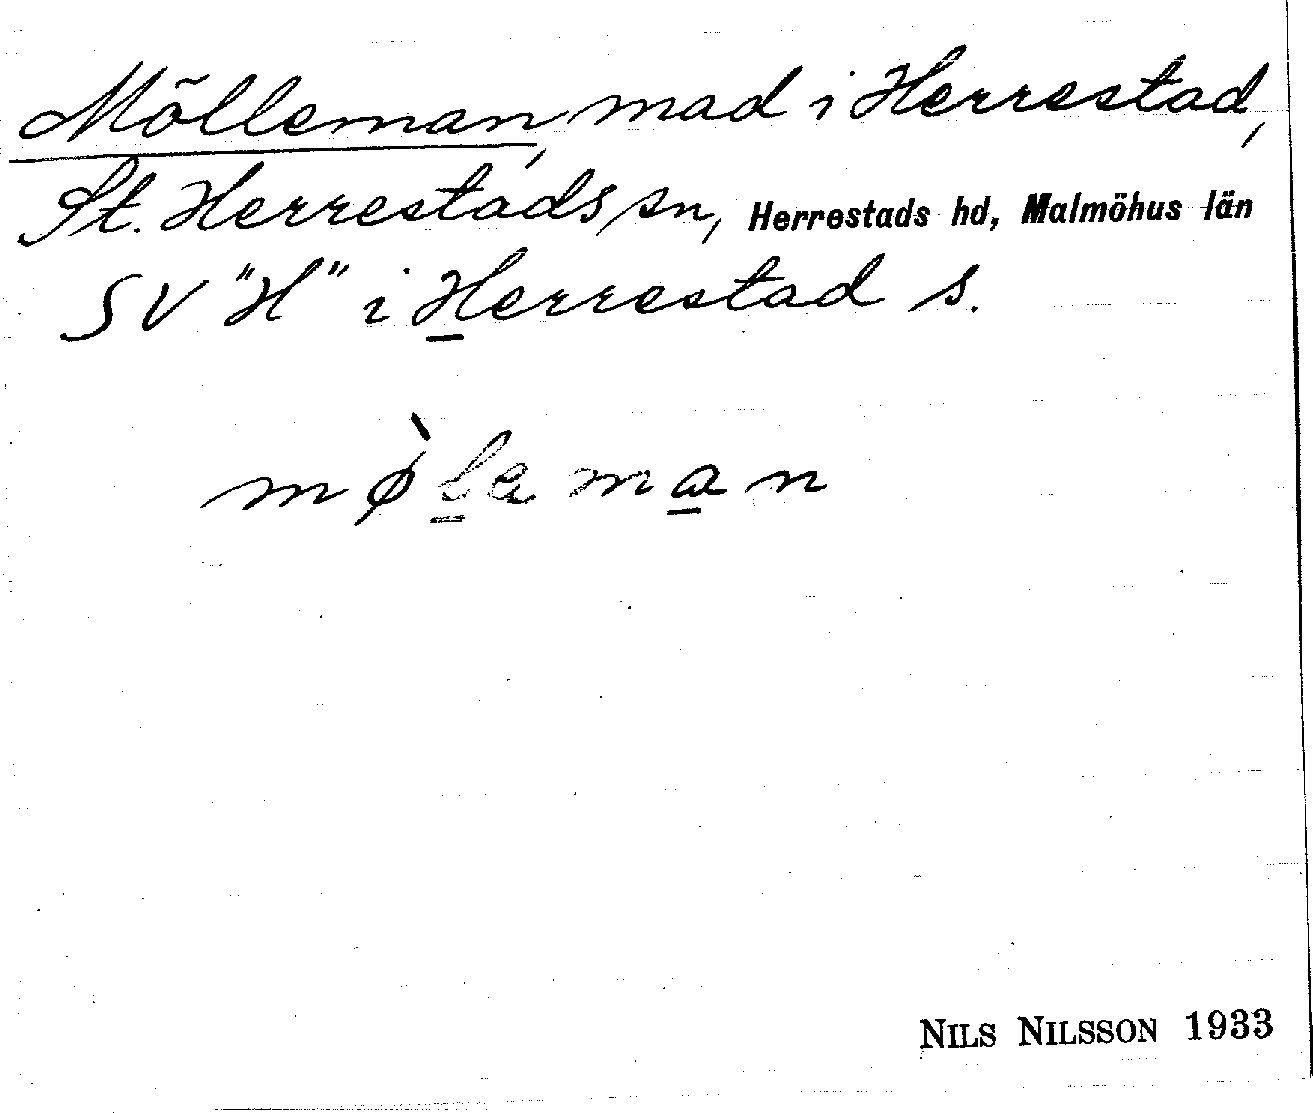 Mölleman, mad i Herrestad,
St. Herrestads sn, Herrestads hd, Malmöhus län
SV "H" i Herrestad s.
mø̀l̲aman̲
NILS NILSSON 1933